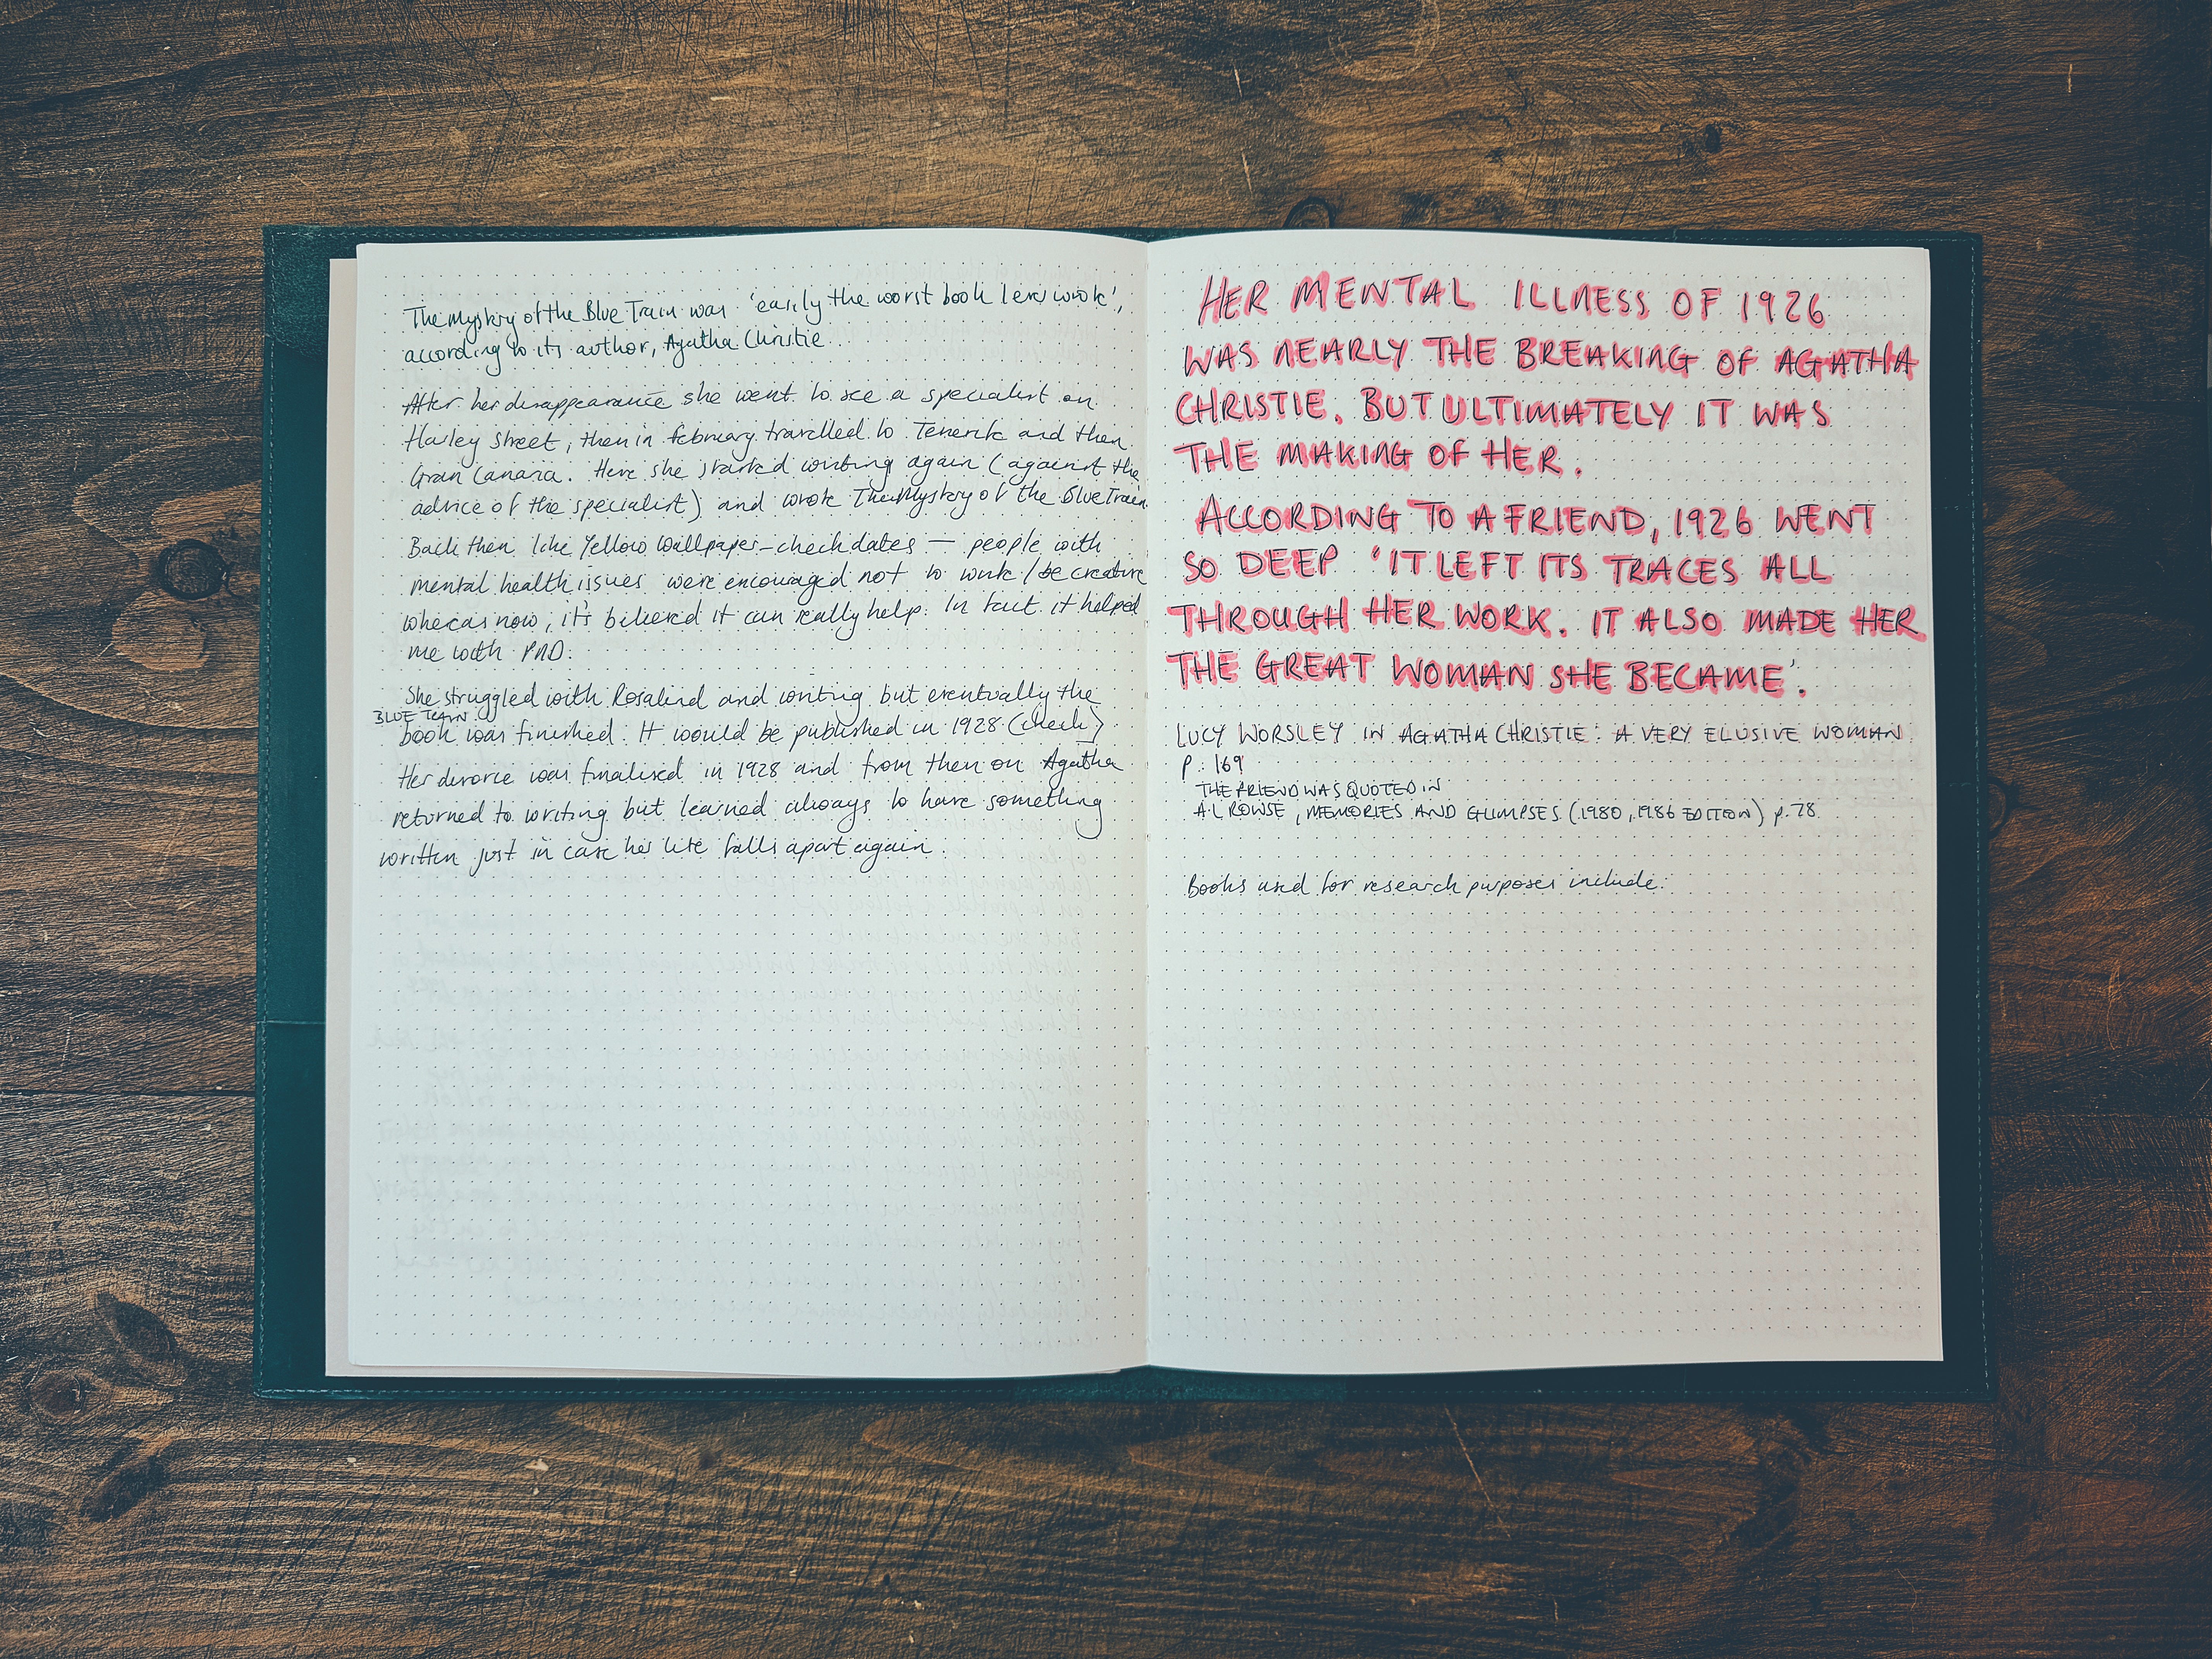 The Mystery of the Blue Train was 'easily the worst book I ever wrote',
according to its author, Agatha Christie...
After her disappearance she went to see a specialist on
Harley Street, then in february travelled to Tenerife and then
Gran Canaria. Here she started writing again (against the
advice of the specialist) and wrote The Mystery of the Blue Train.
Back then like Yellow Wallpaper - check dates — people with
mental health issues were encouraged not to work / be creative
whereas now, it's believed it can really help. In fact it helped
me with PND.
She struggled with Rosalind and writing but eventually the
BLUE TRAIN
book was finished. It would be published in 1928 (check)
Her divorce was finalised in 1928 and from then on Agatha
returned to writing but learned always to have something
written just in case her life falls apart again.
HER MENTAL ILLNESS OF 1926
WAS NEARLY THE BREAKING OF AGATHA
CHRISTIE. BUT ULTIMATELY IT WAS
THE MAKING OF HER.
ACCORDING TO A FRIEND, 1926 WENT
SO DEEP 'IT LEFT ITS TRACES ALL
THROUGH HER WORK. IT ALSO MADE HER
THE GREAT WOMAN SHE BECAME'.
LUCY WORSLEY IN AGATHA CHRISTIE: A VERY ELUSIVE WOMAN
p. 169
THE FRIEND WAS QUOTED IN
A.L ROWSE, MEMORIES AND GLIMPSES (1980, 1986 EDITION) p. 78
Books used for research purposes include: